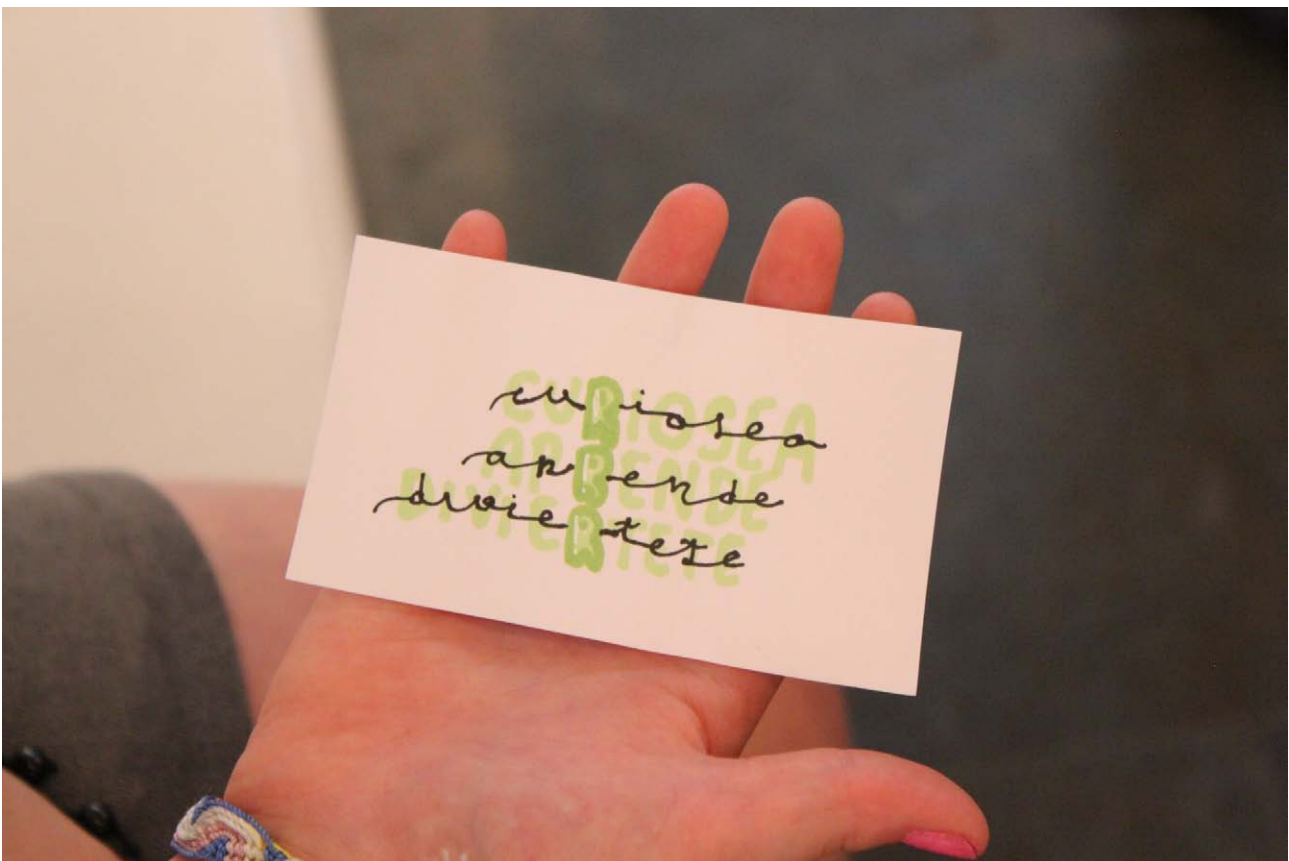 curiosea
aprende
diviertete